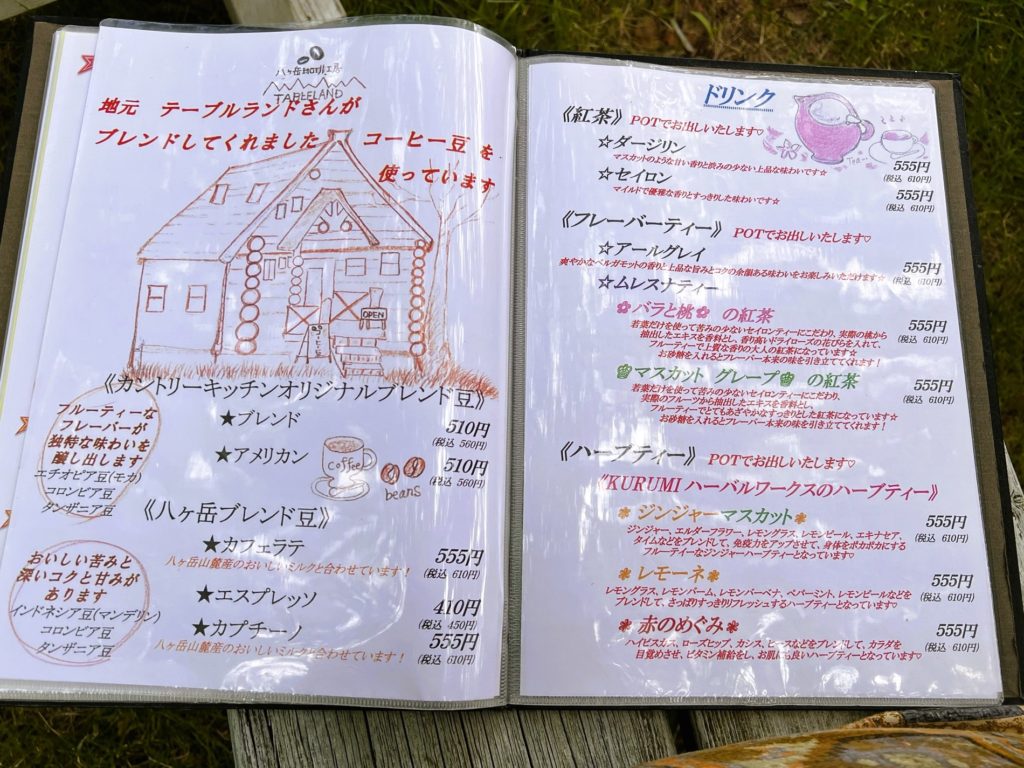 八ヶ岳珈琲工房
TABLELAND
地元 テーブルランドさんが
ブレンドしてくれました コーヒー豆 を
使っています
OPEN
《カントリーキッチンオリジナルブレンド豆》
フルーティーな
フレーバーが
独特な味わいを
醸し出します
エチオピア豆(モカ)
コロンビア豆
タンザニア豆
★ブレンド
510円
(税込 560円)
★アメリカン
510円
(税込 560円)
coffee
beans
《八ヶ岳ブレンド豆》
おいしい苦みと
深いコクと甘みが
あります
インドネシア豆(マンデリン)
コロンビア豆
タンザニア豆
★カフェラテ
555円
八ヶ岳山麓産のおいしいミルクと合わせています!
(税込 610円)
★エスプレッソ
410円
(税込 450円)
★カプチーノ
555円
八ヶ岳山麓産のおいしいミルクと合わせています!
(税込 610円)
ドリンク
《紅茶》 POTでお出しいたします♡
Tea
☆ダージリン
マスカットのような甘い香りと渋みの少ない上品な味わいです☆
555円
(税込 610円)
☆セイロン
マイルドで優雅な香りとすっきりした味わいです☆
555円
(税込 610円)
《フレーバーティー》 POTでお出しいたします♡
☆アールグレイ
爽やかなベルガモットの香りと上品な旨みとコクの余韻ある味わいをお楽しみいただけます☆
555円
(税込 610円)
☆ムレスナティー
✿バラと桃✿ の紅茶
若葉だけを使って苦みの少ないセイロンティーにこだわり、実際の桃から
抽出したエキスを香料とし、香り高いドライローズの花びらを入れて、
フルーティーで上質な香りの大人の紅茶になっています☆
お砂糖を入れるとフレーバー本来の味を引き立ててくれます!
555円
(税込 610円)
マスカット グレープ の紅茶
若葉だけを使って苦みの少ないセイロンティーにこだわり、
実際のフルーツから抽出したエキスを香料とし、
フルーティーでとてもあざやかなすっきりとした紅茶になっています☆
お砂糖を入れるとフレーバー本来の味を引き立ててくれます!
555円
(税込 610円)
《ハーブティー》 POTでお出しいたします♡
《KURUMI ハーバルワークスのハーブティー》
❃ジンジャーマスカット❃
ジンジャー、エルダーフラワー、レモングラス、レモンピール、エキナセア、
タイムなどをブレンドして、免疫力をアップさせて、身体をポカポカにする
フルーティーなジンジャーハーブティーとなっています♡
555円
(税込 610円)
❃レモーネ❃
レモングラス、レモンバーム、レモンバーベナ、ペパーミント、レモンピールなどを
ブレンドして、さっぱりすっきりリフレッシュするハーブティーとなっています♡
555円
(税込 610円)
❃赤のめぐみ❃
ハイビスカス、ローズヒップ、カシス、ヒースなどをブレンドして、カラダを
目覚めさせ、ビタミン補給をし、お肌にも良いハーブティーとなっています♡
555円
(税込 610円)